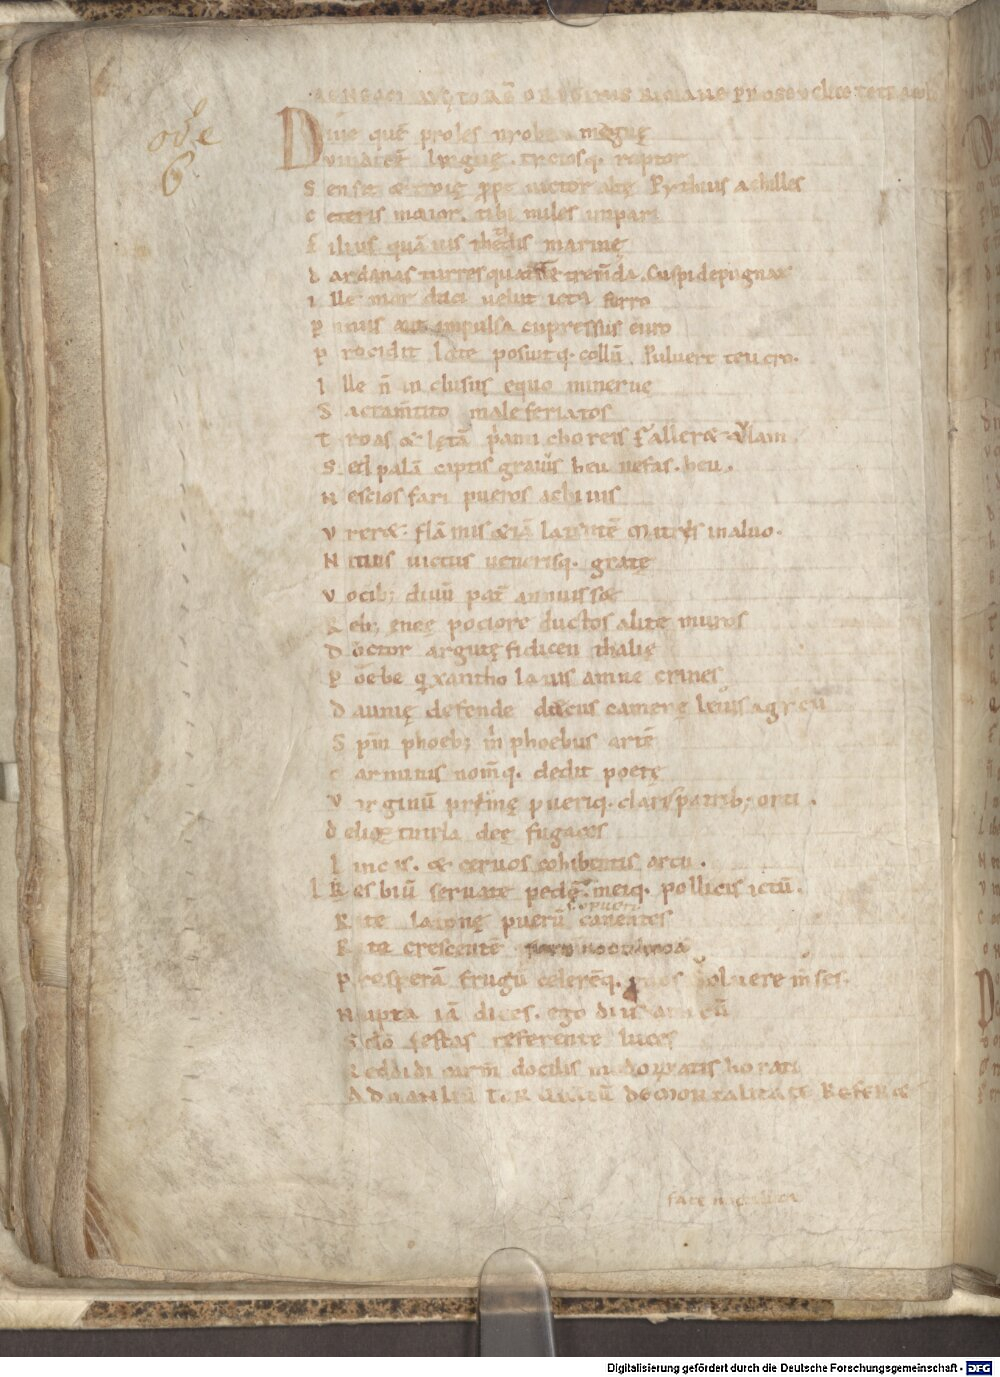 ode
6
Diue quē proles niobea magnę
Vindicē linguę . titiosq; raptor
S ensit & troię ꝓpe uictor altę Pythius achilles
C eteris maior . tibi miles inpar
F ilius quāuis thedis marinę
D ardanas turres quateret trem̄da . Cuspide pugnax
I lle mor daci uelut icta ferro
P inus aut impulsa cupressus euro
P rocidit late posuitq; collū . Puluere teucro .
I lle n̄ in clusus equo minerue
S acra m̄tito male feriatos
T roas & lętā p̄ami choreis Faller& aulam
S ed palā captis grauis heu nefas . heu .
N escios fari pueros achiuis
V rer& flāmis &iā latentē Matris in aluo .
N i tuis uictus uenerisq; gratę
V ocib; diuū pat̄ annuiss&
R eb; ęneę pociore ductos alite muros
D octor argutę fidicen thalię
P oebe q̄ xantho lauis amne crines
D aunię defende decus camenę leuis agyeu
S pm̄ phoeb; m̄ phoebus artē
C arminis nom̄q; dedit poetę
V irginū primę pueriq; claris patrib; orti .
D elię tutela deę fugaces
L inces . & ceruos cohibentis arcu .
L esbiū seruate pedē . meiq; pollicis ictū .
R ite latonę puerū canentes
R ite crescentē
P rosperā frugū celerēq; uoluere m̄ses .
N upta iā dices . ego diis amicū
S clo festas referente luces
R eddidi carm̄ docilis modorū uatis horati
AD MANLIŪ TORQUATŪ DE MORTALITATE REFER&
Digitalisierung gefördert durch die Deutsche Forschungsgemeinschaft - DFG